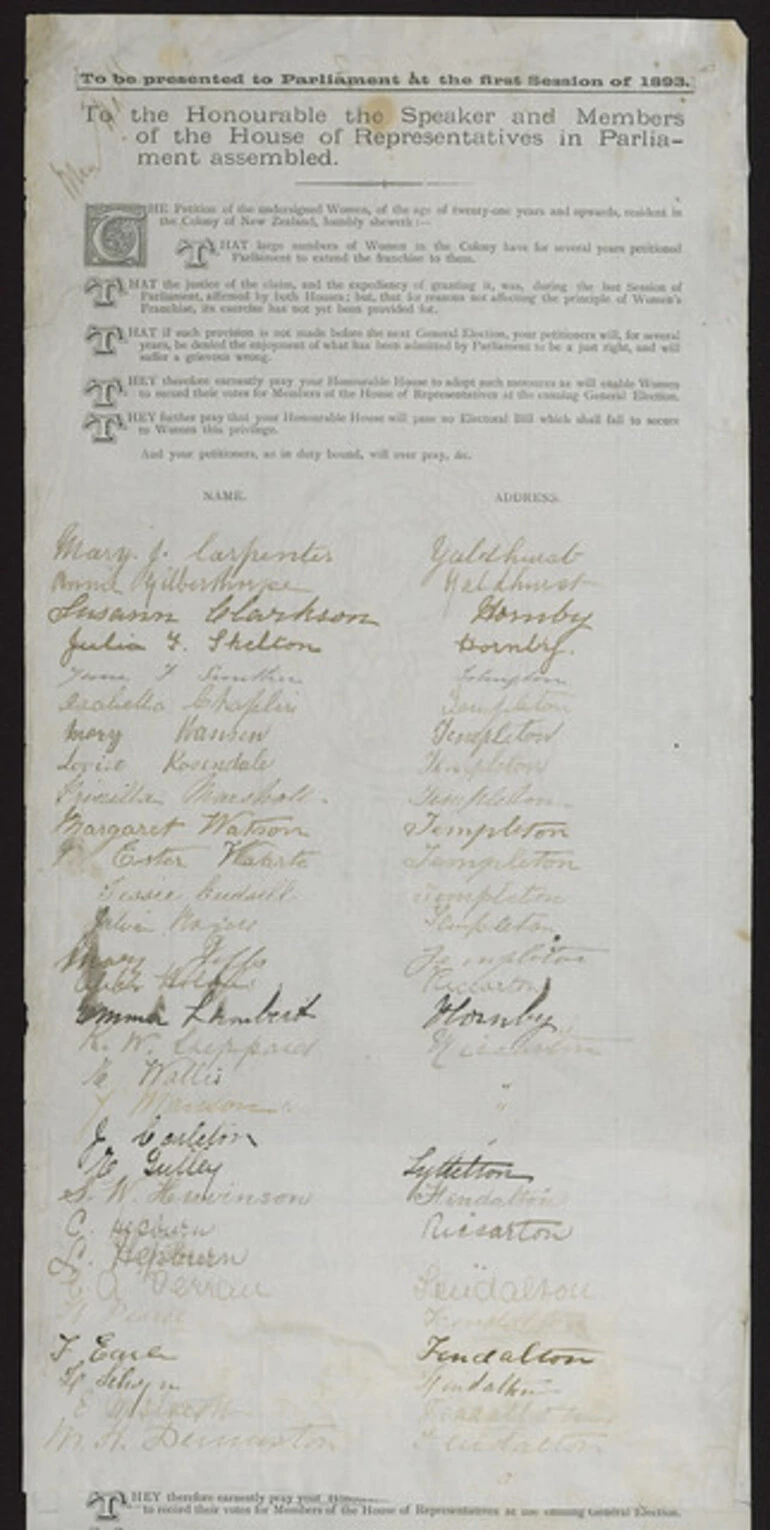 To be presented to Parliament at the first Session of 1893.
To the Honourable the Speaker and Members
of the House of Representatives in Parlia-
ment assembled.
THE Petition of the undersigned Women, of the age of twenty-one years and upwards, resident in
the Colony of New Zealand, humbly sheweth :—
THAT large numbers of Women in the Colony have for several years petitioned
Parliament to extend the franchise to them.
THAT the justice of the claim, and the expediency of granting it, was, during the last Session of
Parliament, affirmed by both Houses; but, that for reasons not affecting the principle of Women's
Franchise, its exercise has not yet been provided for.
THAT if such provision is not made before the next General Election, your petitioners will, for several
years, be denied the enjoyment of what has been admitted by Parliament to be a just right, and will
suffer a grievous wrong.
THEY therefore earnestly pray your Honourable House to adopt such measures as will enable Women
to record their votes for Members of the House of Representatives at the ensuing General Election.
THEY further pray that your Honourable House will pass no Electoral Bill which shall fail to secure
to Women this privilege.
And your petitioners, as in duty bound, will ever pray, &c.
NAME. ADDRESS.
Mary. J. Carpenter Yaldhurst
Anna Gilberthorpe Yaldhurst
Susann Clarkson Hornby
Julia F. Skelton Hornby.
Templeton
Chaplin Templeton
Mary Hansen Templeton
Rosendale Templeton
Marshall. Templeton
Margaret Watson Templeton
Ester Templeton
Templeton
Templeton
Mary Templeton
Riccarton
Emma Lambert Hornby
K. W. Sheppard Riccarton
E Wallis
Manson "
J Carleton
E Gulley Lyttelton
Fendalton
C. Hepburn Riccarton
L. Hepburn "
Fendalton
Fendalton
F Fendalton
Fendalton
Fendalton
M. H. Denniston Fendalton
THEY therefore earnestly pray your
to record their votes for Members of the House of Representatives at the ensuing General Election.